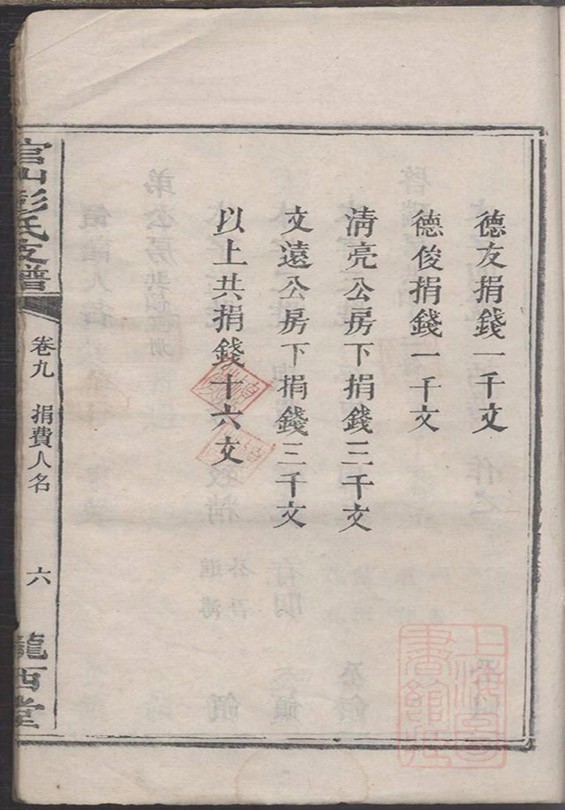 德友捐錢一千文
德俊捐錢一千文
清亮公房下捐錢三千文
文遠公房下捐錢三千文
以上共捐錢十六文
官山彭氏支譜
卷九 捐費人名
六
龍西堂